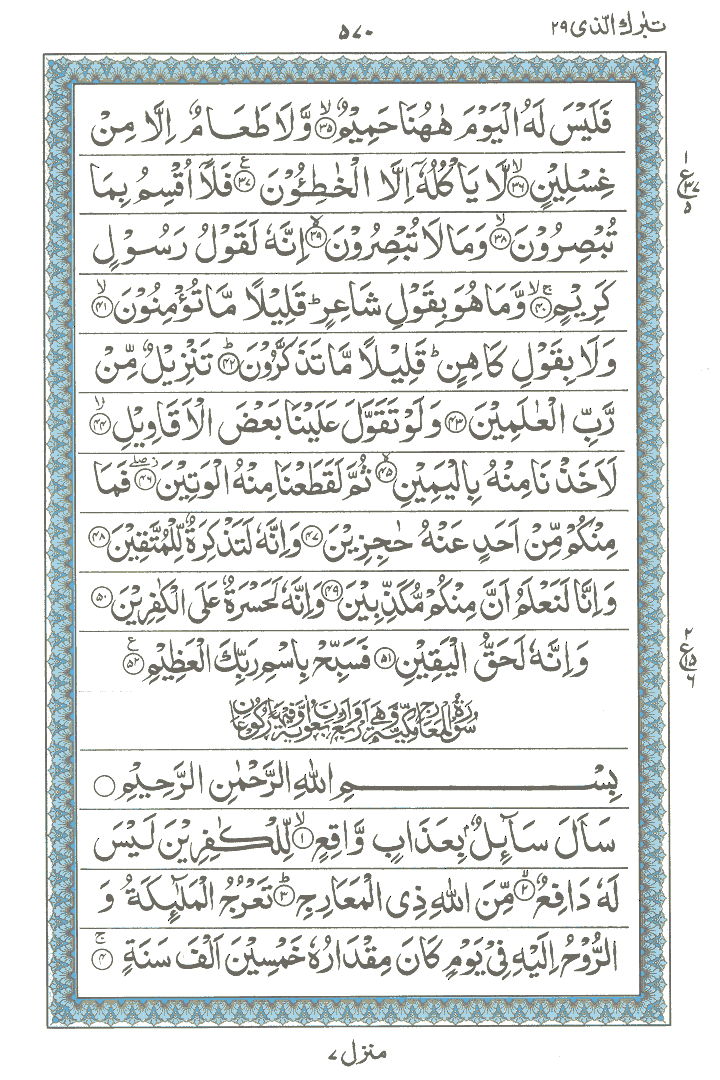 تبٰرك الذی ۲۹
۵۷۰
فَلَيْسَ لَهُ الْيَوْمَ هٰهُنَا حَمِيْمٌ ۙ﴿۳۵﴾ وَّلَا طَعَامٌ اِلَّا مِنْ
غِسْلِيْنٍ ۙ﴿۳۶﴾ لَّا يَاْكُلُهٗۤ اِلَّا الْخٰطِـُٔوْنَ ﴿۳۷﴾ع فَلَاۤ اُقْسِمُ بِمَا
۱
ع
۳۷
۵
تُبْصِرُوْنَ ۙ﴿۳۸﴾ وَمَا لَا تُبْصِرُوْنَ ۙ﴿۳۹﴾ اِنَّهٗ لَقَوْلُ رَسُوْلٍ
كَرِيْمٍ ۚۙ﴿۴۰﴾ وَّمَا هُوَ بِقَوْلِ شَاعِرٍ ؕ قَلِيْلًا مَّا تُؤْمِنُوْنَ ۙ﴿۴۱﴾
وَلَا بِقَوْلِ كَاهِنٍ ؕ قَلِيْلًا مَّا تَذَكَّرُوْنَ ؕ﴿۴۲﴾ تَنْزِيْلٌ مِّنْ
رَّبِّ الْعٰلَمِيْنَ ﴿۴۳﴾ وَلَوْ تَقَوَّلَ عَلَيْنَا بَعْضَ الْاَقَاوِيْلِ ۙ﴿۴۴﴾
لَاَخَذْنَا مِنْهُ بِالْيَمِيْنِ ۙ﴿۴۵﴾ ثُمَّ لَقَطَعْنَا مِنْهُ الْوَتِيْنَ ۖ﴿۴۶﴾ فَمَا
مِنْكُمْ مِّنْ اَحَدٍ عَنْهُ حٰجِزِيْنَ ﴿۴۷﴾ وَاِنَّهٗ لَتَذْكِرَةٌ لِّلْمُتَّقِيْنَ ﴿۴۸﴾
وَاِنَّا لَنَعْلَمُ اَنَّ مِنْكُمْ مُّكَذِّبِيْنَ ﴿۴۹﴾ وَاِنَّهٗ لَحَسْرَةٌ عَلَى الْكٰفِرِيْنَ ﴿۵۰﴾
وَاِنَّهٗ لَحَقُّ الْيَقِيْنِ ﴿۵۱﴾ فَسَبِّحْ بِاسْمِ رَبِّكَ الْعَظِيْمِ ﴿۵۲﴾ع
۲
ع
۱۵
۶
سورة المعارج مكية وهي اربع واربعون اية وفيها ركوعان
بِسْمِ اللهِ الرَّحْمٰنِ الرَّحِيْمِ ○
سَاَلَ سَآئِلٌۢ بِعَذَابٍ وَّاقِعٍ ۙ﴿۱﴾ لِّلْكٰفِرِيْنَ لَيْسَ
لَهٗ دَافِعٌ ۙ﴿۲﴾ مِّنَ اللهِ ذِى الْمَعَارِجِ ؕ﴿۳﴾ تَعْرُجُ الْمَلٰٓئِكَةُ وَ
الرُّوْحُ اِلَيْهِ فِيْ يَوْمٍ كَانَ مِقْدَارُهٗ خَمْسِيْنَ اَلْفَ سَنَةٍ ۚ﴿۴﴾
منزل ۷